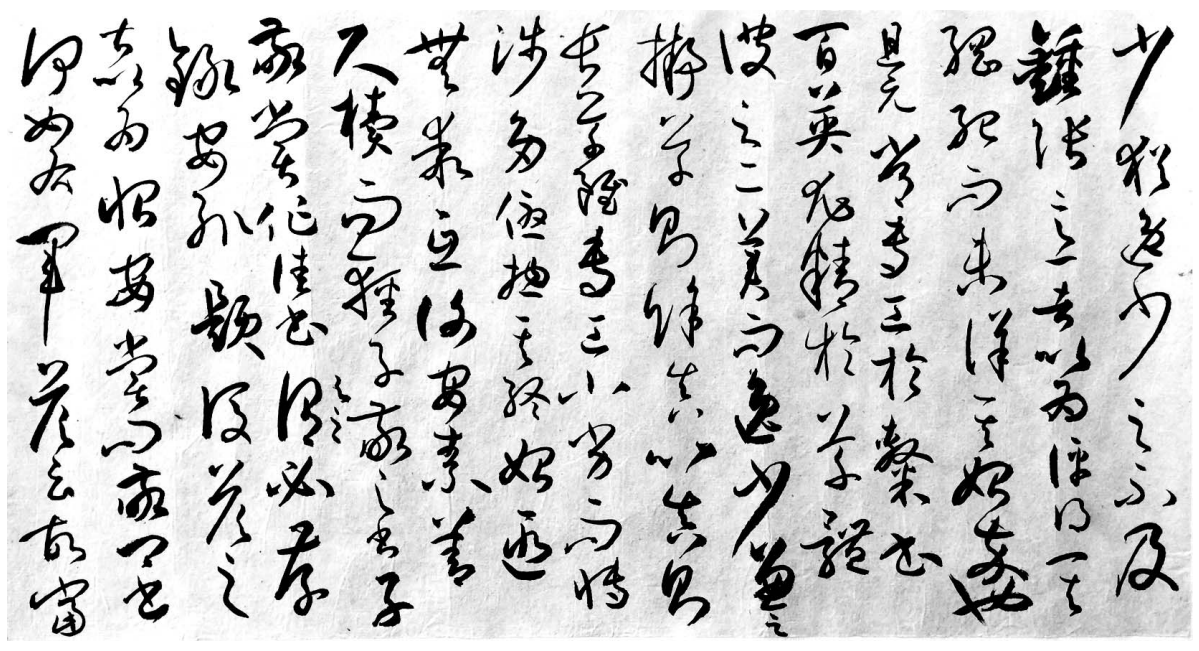 少猶逸少之不及
鍾張意者以為評得其
綱紀而未詳其始卒也
且元常專工於隸書
百英尤精於草體
彼之二美而逸少兼之
擬草則餘真比真則
長草雖專工小劣而博
涉多優揔其終始匪
無乖互謝安素善
尺櫝而輕子敬之書子
敬嘗作佳書與之謂必存
錄安輒題後答之
甚以為恨安嘗問敬卿書
何如右軍答云故當